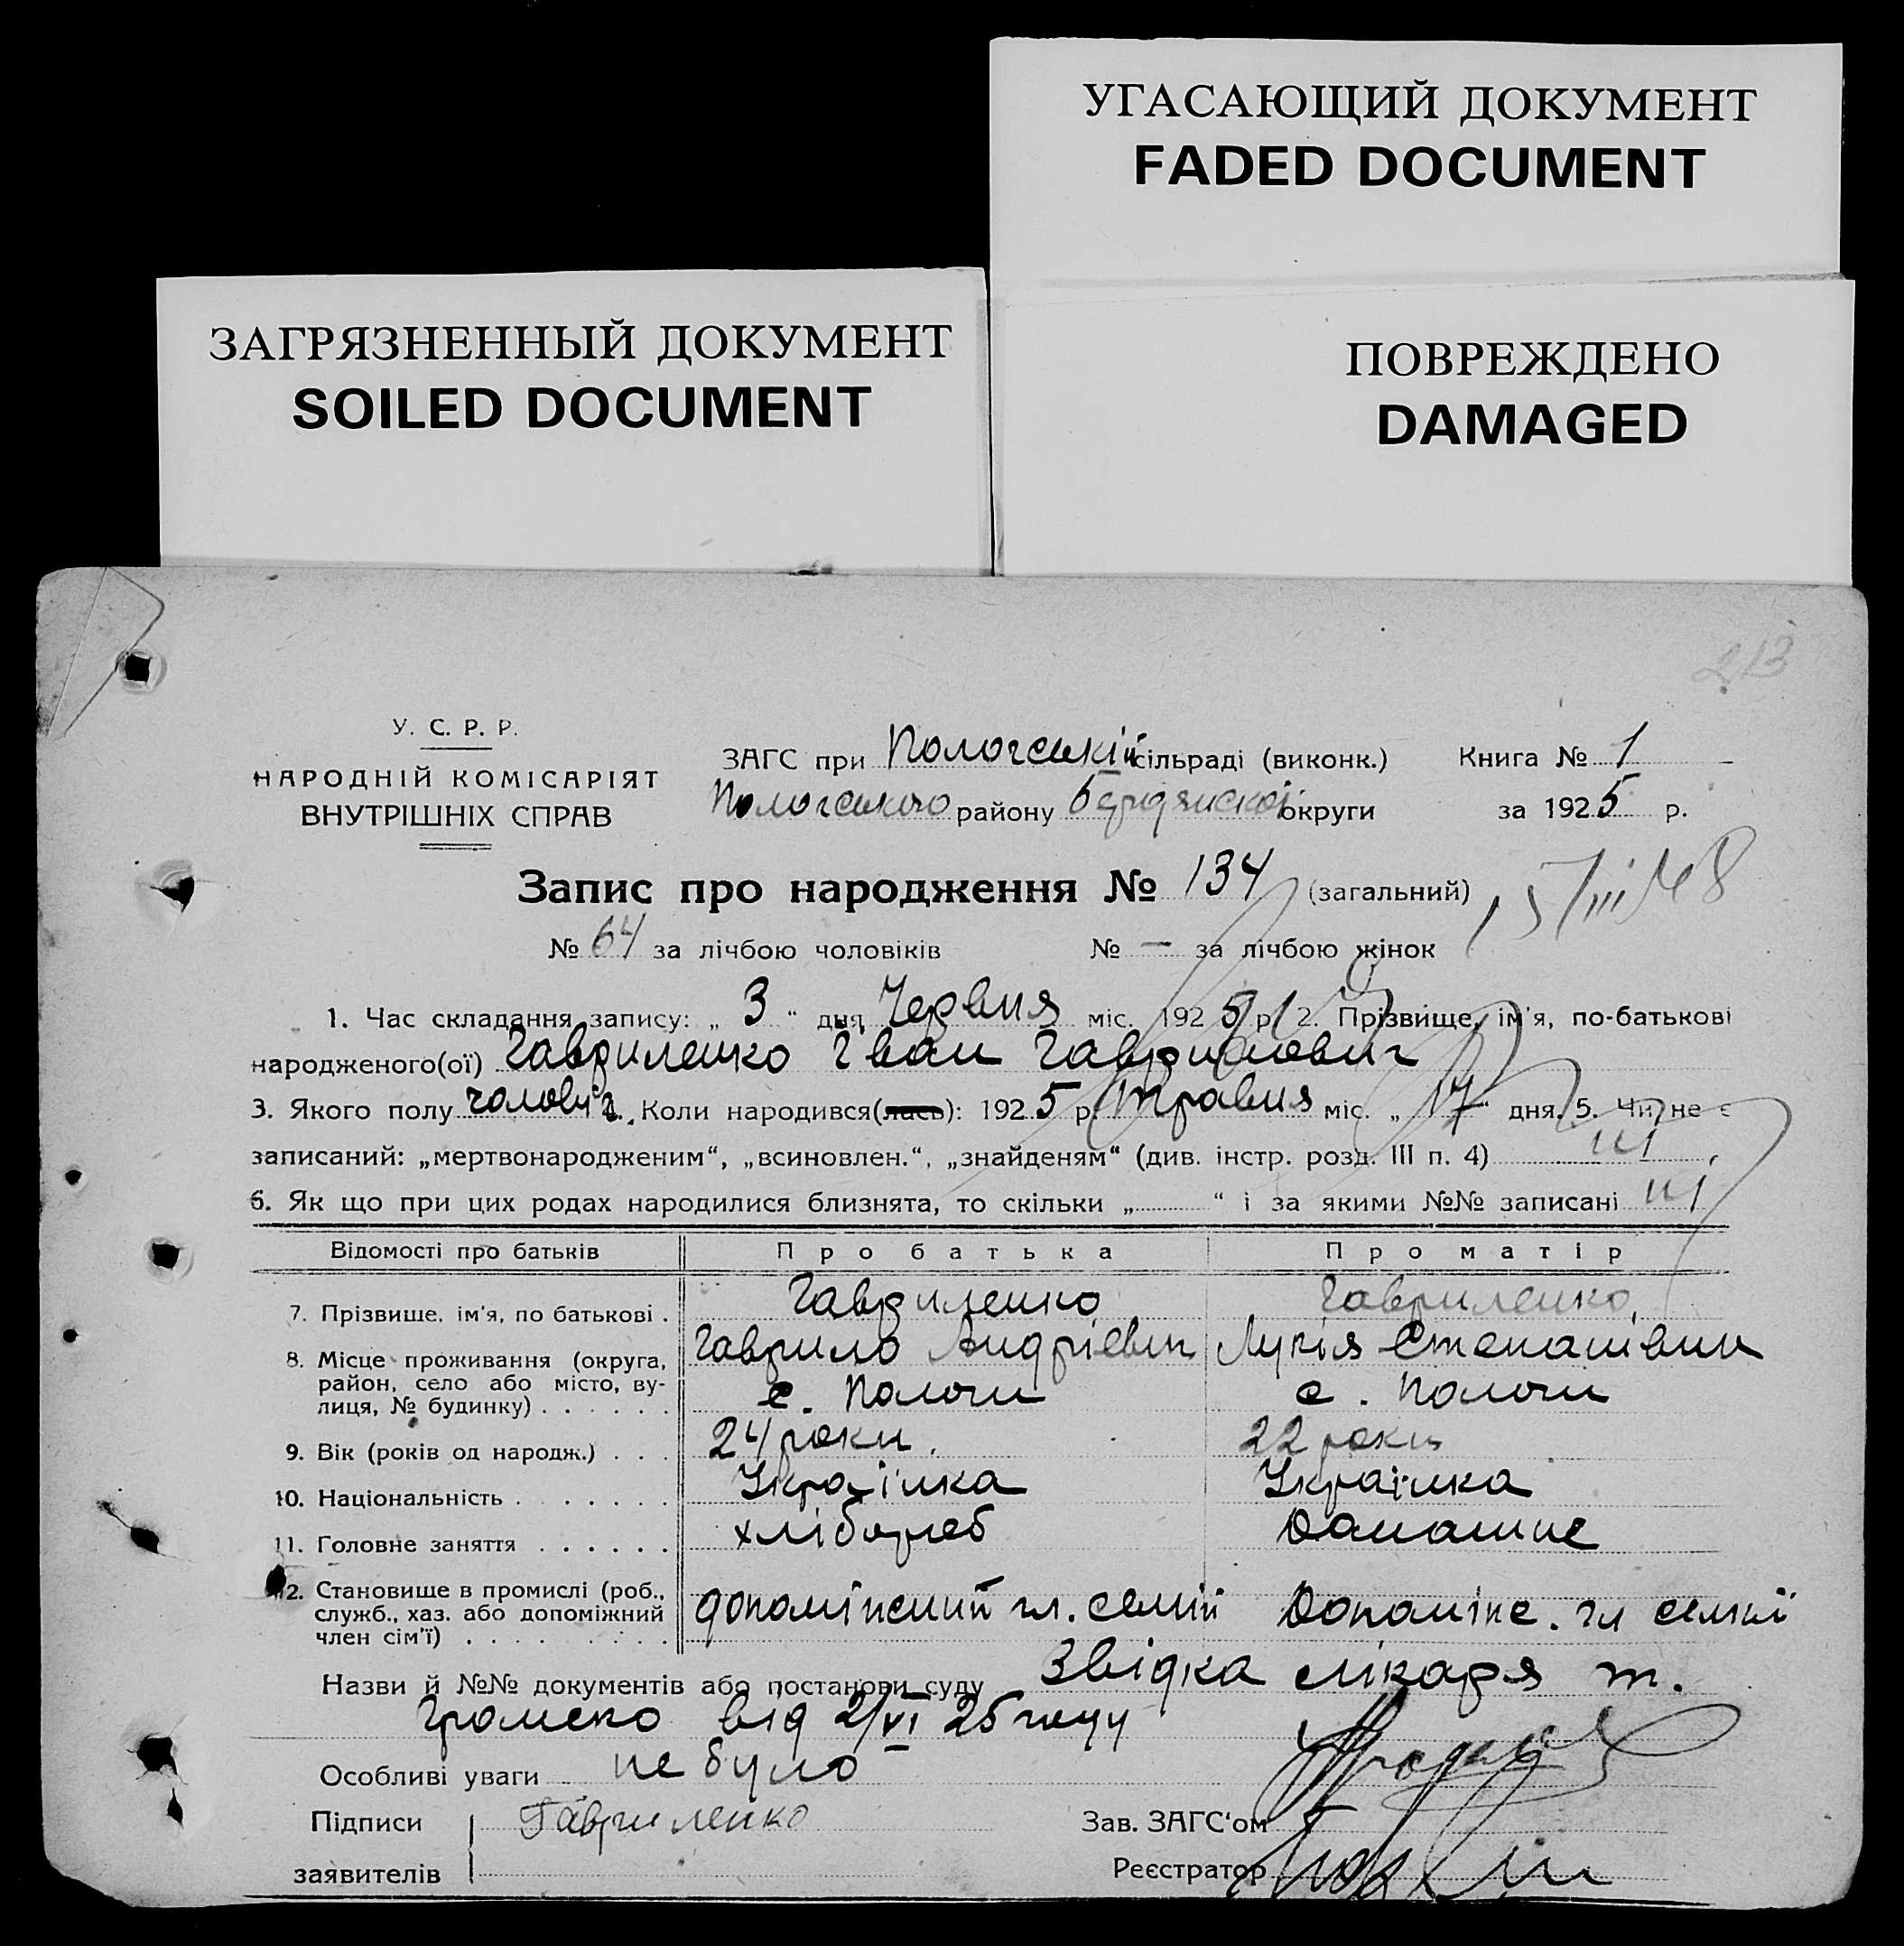 УГАСАЮЩИЙ ДОКУМЕНТ
FADED DOCUMENT
ЗАГРЯЗНЕННЫЙ ДОКУМЕНТ
SOILED DOCUMENT
ПОВРЕЖДЕНО
DAMAGED
213
У. С. Р. Р.
НАРОДНІЙ КОМІСАРІЯТ
ВНУТРІШНІХ СПРАВ
ЗАГС при Пологській сільраді (виконк.) Книга № 1
Пологського району Бердянської округи за 1925 р.
Запис про народження № 134 (загальний)
№ 64 за лічбою чоловіків № — за лічбою жінок
1. Час складання запису: „ 3 “ дня Червня міс. 1925 р. 2. Прізвище, ім'я, по-батькові
народженого(ої) Гавриленко Іван Гаврилович
3. Якого полу чоловіч. Коли народився(лась): 1925 р. Травня міс. „ 17 “ дня. 5. Чи не є
записаний: „мертвонародженим“, „всиновлен.“, „знайденям“ (див. інстр. розд. III п. 4)
6. Як що при цих родах народилися близнята, то скільки „ “ і за якими №№ записані
Відомості про батьків Про батька Про матір
7. Прізвище, ім'я, по батькові . Гавриленко Гавриленко
Гаврило Андрієвич Лукія Степанівни
8. Місце проживання (округа, район, село або місто, вулиця, № будинку) . . . . . . с. Пологи с. Пологи
9. Вік (років од народж.) . . . 24 роки. 22 роки
10. Національність . . . . . . . Українка Українка
11. Головне заняття . . . . . . хлібороб Домашнє
12. Становище в промислі (роб., служб., хаз. або допоміжний член сім'ї) . . . . . . . . . гл. семії гл семії
Назви й №№ документів або постанови суду Звідка лікаря т.
Громеко від 2/VI 25 году
Особливі уваги не було
Підписи Гавриленко Зав. ЗАГС'ом
заявителів Реєстратор